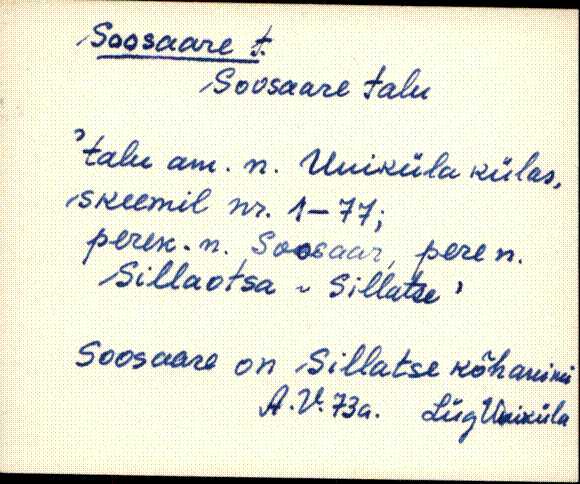 Soosaare t.
Soosaare talu
'talu am. n. Uniküla külas,
skeemil nr. 1-77;
perek. n. Soosaar, pere n.
Sillaotsa ~ Sillatse'
Soosaare on Sillatse kõhanimi
A.V. 73a. Lüg Uniküla